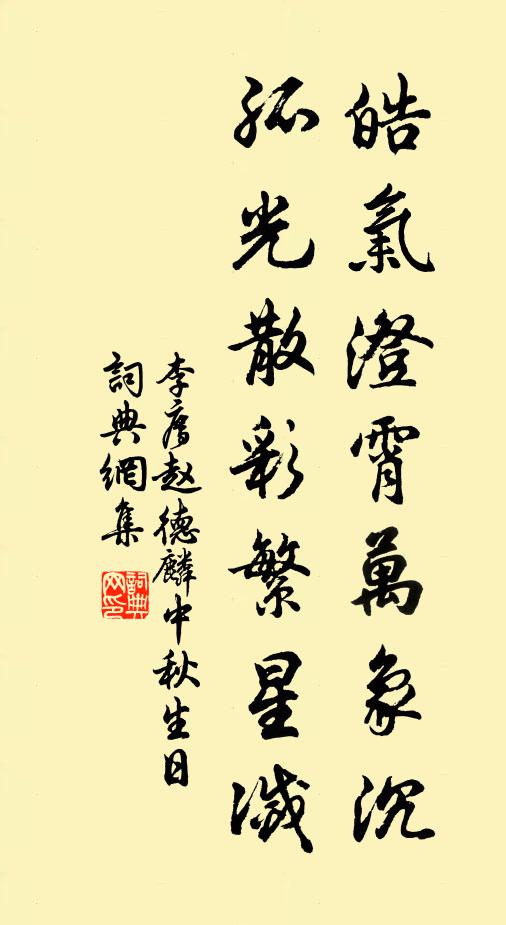 皓氣澄霄萬象沉
孤光散彩繁星滅
李廌趙德麟中秋生日
詞典網集
詞典網印